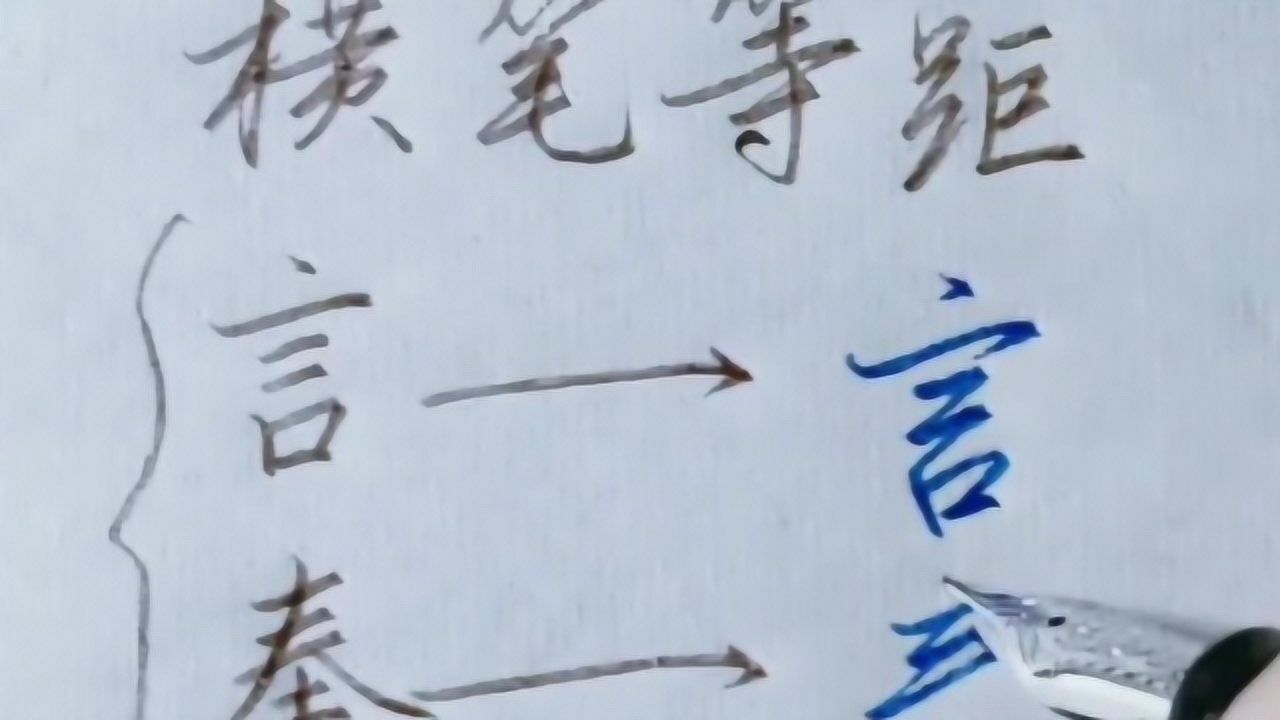 横笔等距
言 言